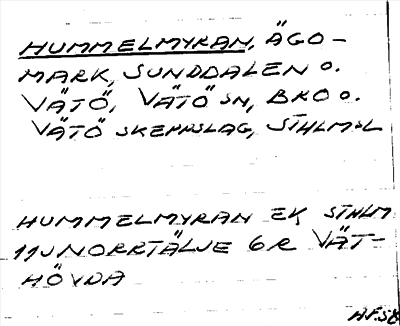 HUMMELMYRAN, ÄGO-
MARK, SUNDDALEN o.
VÄTÖ, VÄTÖ SN, BRO o.
VÄTÖ SKEPPSLAG, STHLMSL
HUMMELMYRAN EK STHLM
11J NORRTÄLJE 6R VÄT-
HÖVDA
AF.58